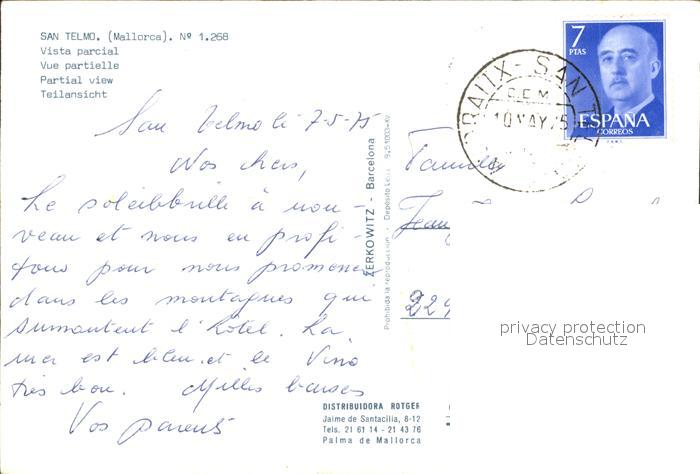 SAN TELMO. (Mallorca). Nº 1.268
Vista parcial
Vue partielle
Partial view
Teilansicht
7
PTAS
ESPAÑA
CORREOS
10 MAY 75
San Telmo le 7-5-75
Nos chers,
Le soleil brille à nou-
veau et nous en profi-
tons pour nous promener
dans les montagnes qui
surmontent l'hôtel. La
mer est bleu et le Vino
très bon. Milles baises
Vos parents
Famille
Jean
229
ZERKOWITZ - Barcelona
Prohibida la reproducción
privacy protection
Datenschutz
DISTRIBUIDORA ROTGER
Jaime de Santacilia, 8-12
Tels. 21 61 14 - 21 43 76
Palma de Mallorca